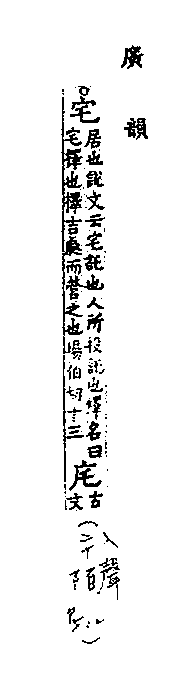 廣韻
宅居也說文云宅託也人所投託也釋名曰
宅擇也擇吉處而營之也場伯切十三
㡯古文
入聲
二十陌